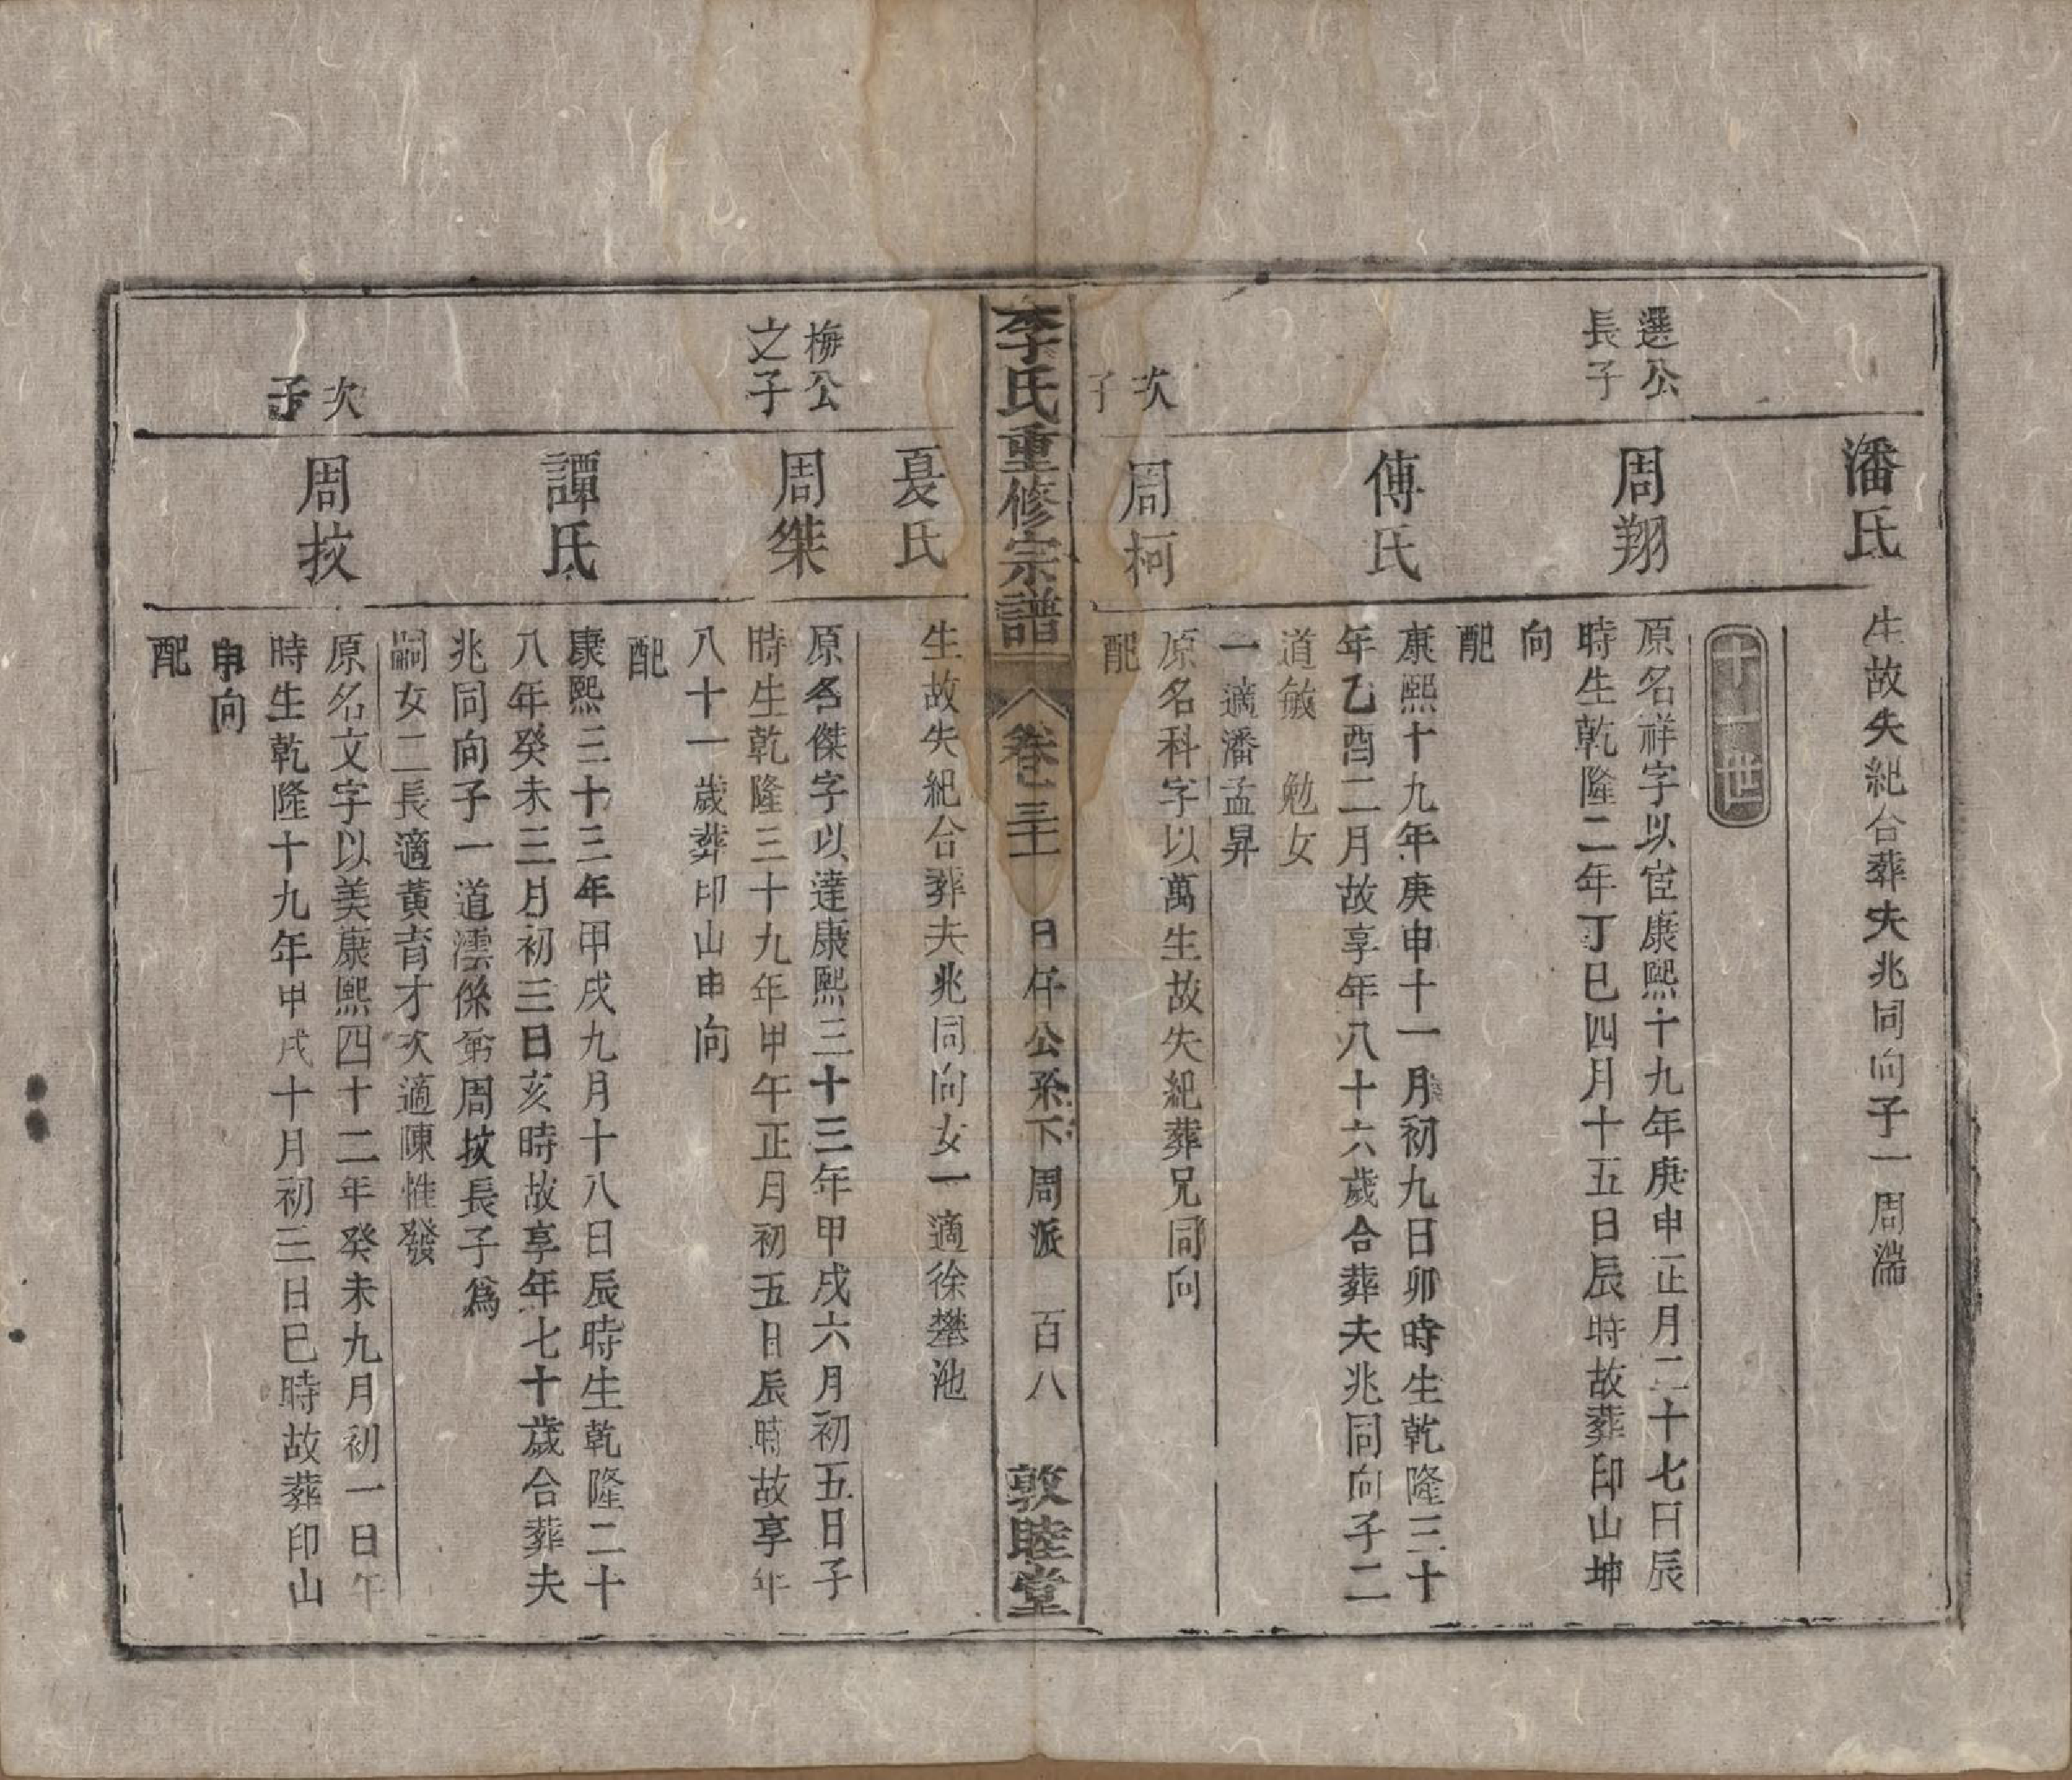 潘氏
生故失紀合葬夫兆同向子一周湍
十一世
選公
長子
周翔
原名祥字以宦康熙十九年庚申正月二十七日辰
時生乾隆二年丁巳四月十五日辰時故葬印山坤
向
配
傅氏
康熙十九年庚申十一月初九日卯時生乾隆三十
年乙酉二月故享年八十六歲合葬夫兆同向子二
道敏 勉女
一適潘孟昇
次
子
周柯
原名科字以萬生故失紀葬兄同向
配
李氏重修宗譜 卷三十一 日仟公系下周派 百八 敦睦堂
夏氏
生故失紀合葬夫兆同向女一適徐攀池
梅公
之子
周桀
原名傑字以達康熙三十三年甲戌六月初五日子
時生乾隆三十九年甲午正月初五日辰時故享年
八十一歲葬印山申向
配
譚氏
康熙三十三年甲戌九月十八日辰時生乾隆二十
八年癸未三月初三日亥時故享年七十歲合葬夫
兆同向子一道澐係弟周抆長子爲
嗣女二長適黃育才次適陳惟發
次
子
周抆
原名文字以美康熙四十二年癸未九月初一日午
時生乾隆十九年甲戌十月初三日巳時故葬印山
申向
配